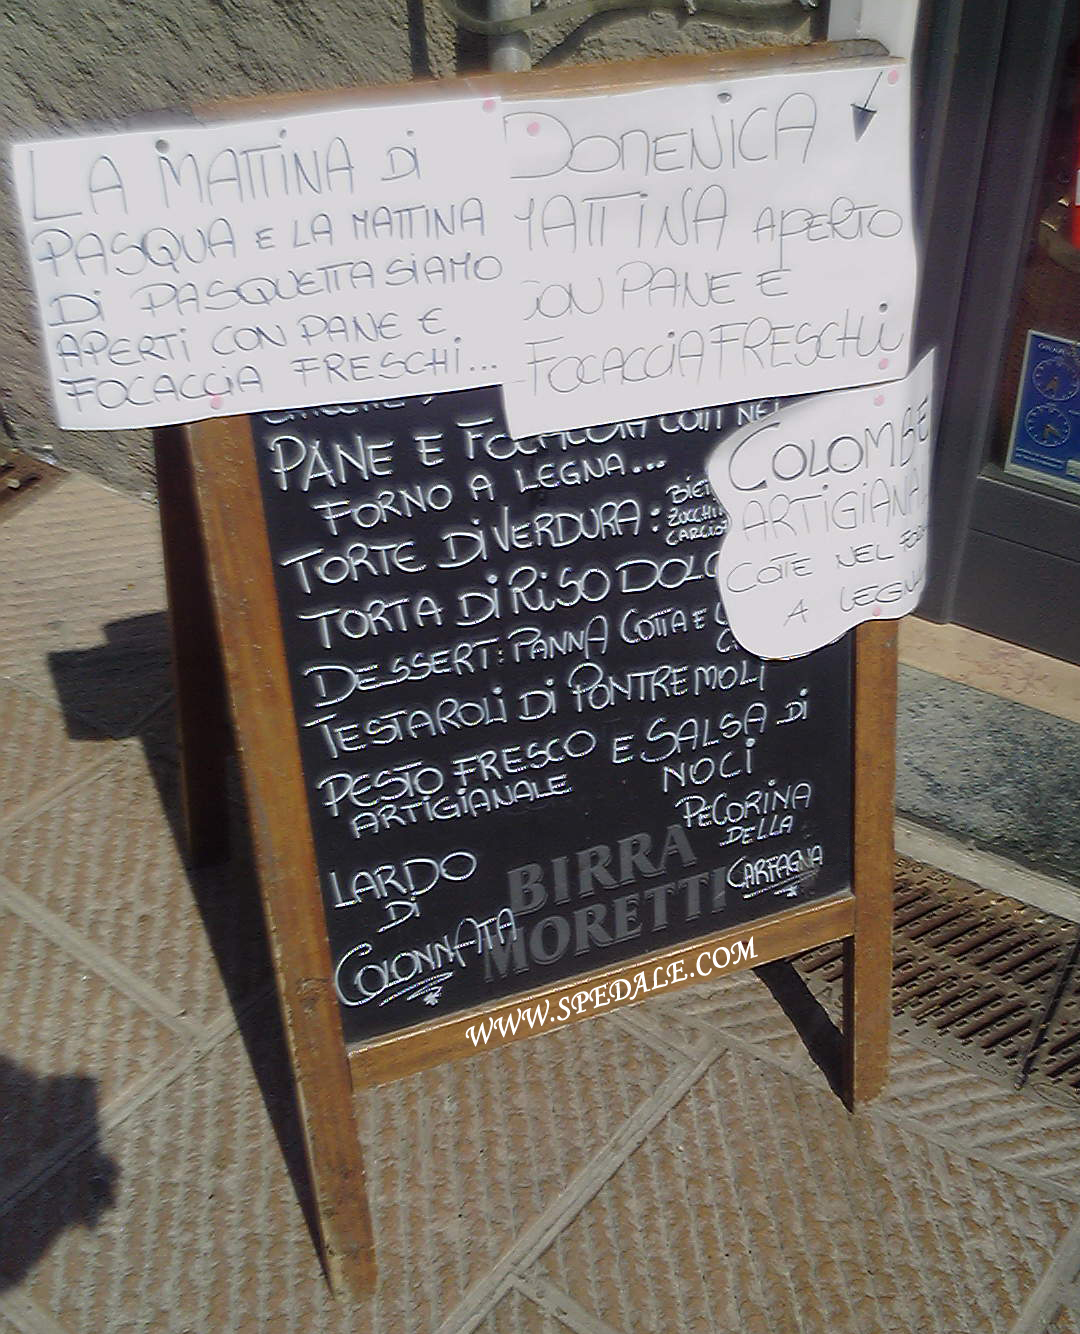 LA MATTINA DI
PASQUA E LA MATTINA
DI PASQUETTA SIAMO
APERTI CON PANE E
FOCACCIA FRESCHI...
DOMENICA
MATTINA APERTO
CON PANE E
FOCACCIA FRESCHI
COLOMBE
ARTIGIANA
COTTE NEL
A LEGNA
PANE E FOCACCIA COTTI NEL
FORNO A LEGNA...
TORTE DI VERDURA:
TORTA DI RISO DOLCE
DESSERT: PANNA COTTA E
TESTAROLI DI PONTREMOLI
PESTO FRESCO E SALSA DI
ARTIGIANALE NOCI
LARDO
DI
COLONNATA
PECORINA
DELLA
GARFAGNA
BIRRA
MORETTI
WWW.SPEDALE.COM